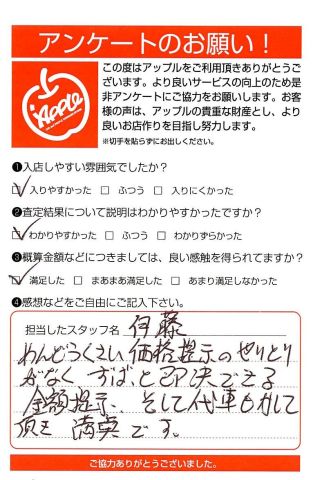 アンケートのお願い！
Apple
この度はアップルをご利用頂きありがとうご
ざいます。より良いサービスの向上のため是
非アンケートにご協力をお願いします。お客
様の声は、アップルの貴重な財産とし、より
良いお店作りを目指し努力します。
※切手を貼らずにお出しください。
❶入店しやすい雰囲気でしたか？
☑ 入りやすかった □ ふつう □ 入りにくかった
❷査定結果について説明はわかりやすかったですか？
☑ わかりやすかった □ ふつう □ わかりずらかった
❸概算金額などにつきましては、良い感触を得られてますか？
☑ 満足した □ まあまあ満足した □ あまり満足しなかった
❹感想などをご自由にご記入下さい。
担当したスタッフ名 伊藤
めんどうくさい価格提示のやりとり
がなく ずばっと即決できる
金額提示、そして代車もかして
頂き 満足です。
ご協力ありがとうございました。